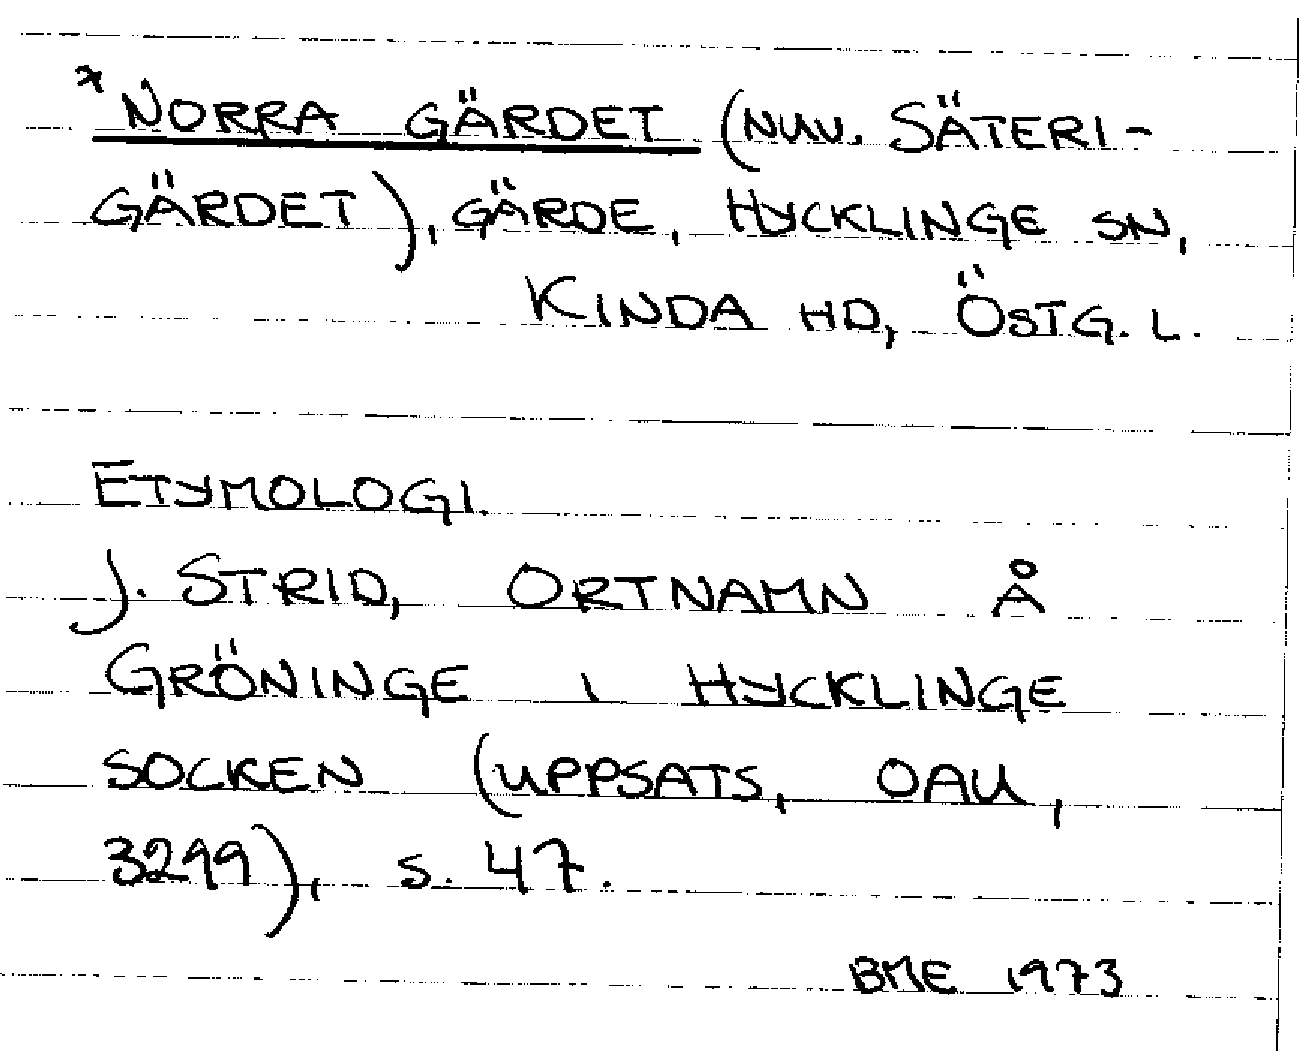 *NORRA GÄRDET (NUV. SÄTERI-
GÄRDET), GÄRDE, HYCKLINGE SN,
KINDA HD, ÖSTG. L.
ETYMOLOGI.
J. STRID, ORTNAMN Å
GRÖNINGE I HYCKLINGE
SOCKEN (UPPSATS, OAU,
3299), S. 47.
BME 1973